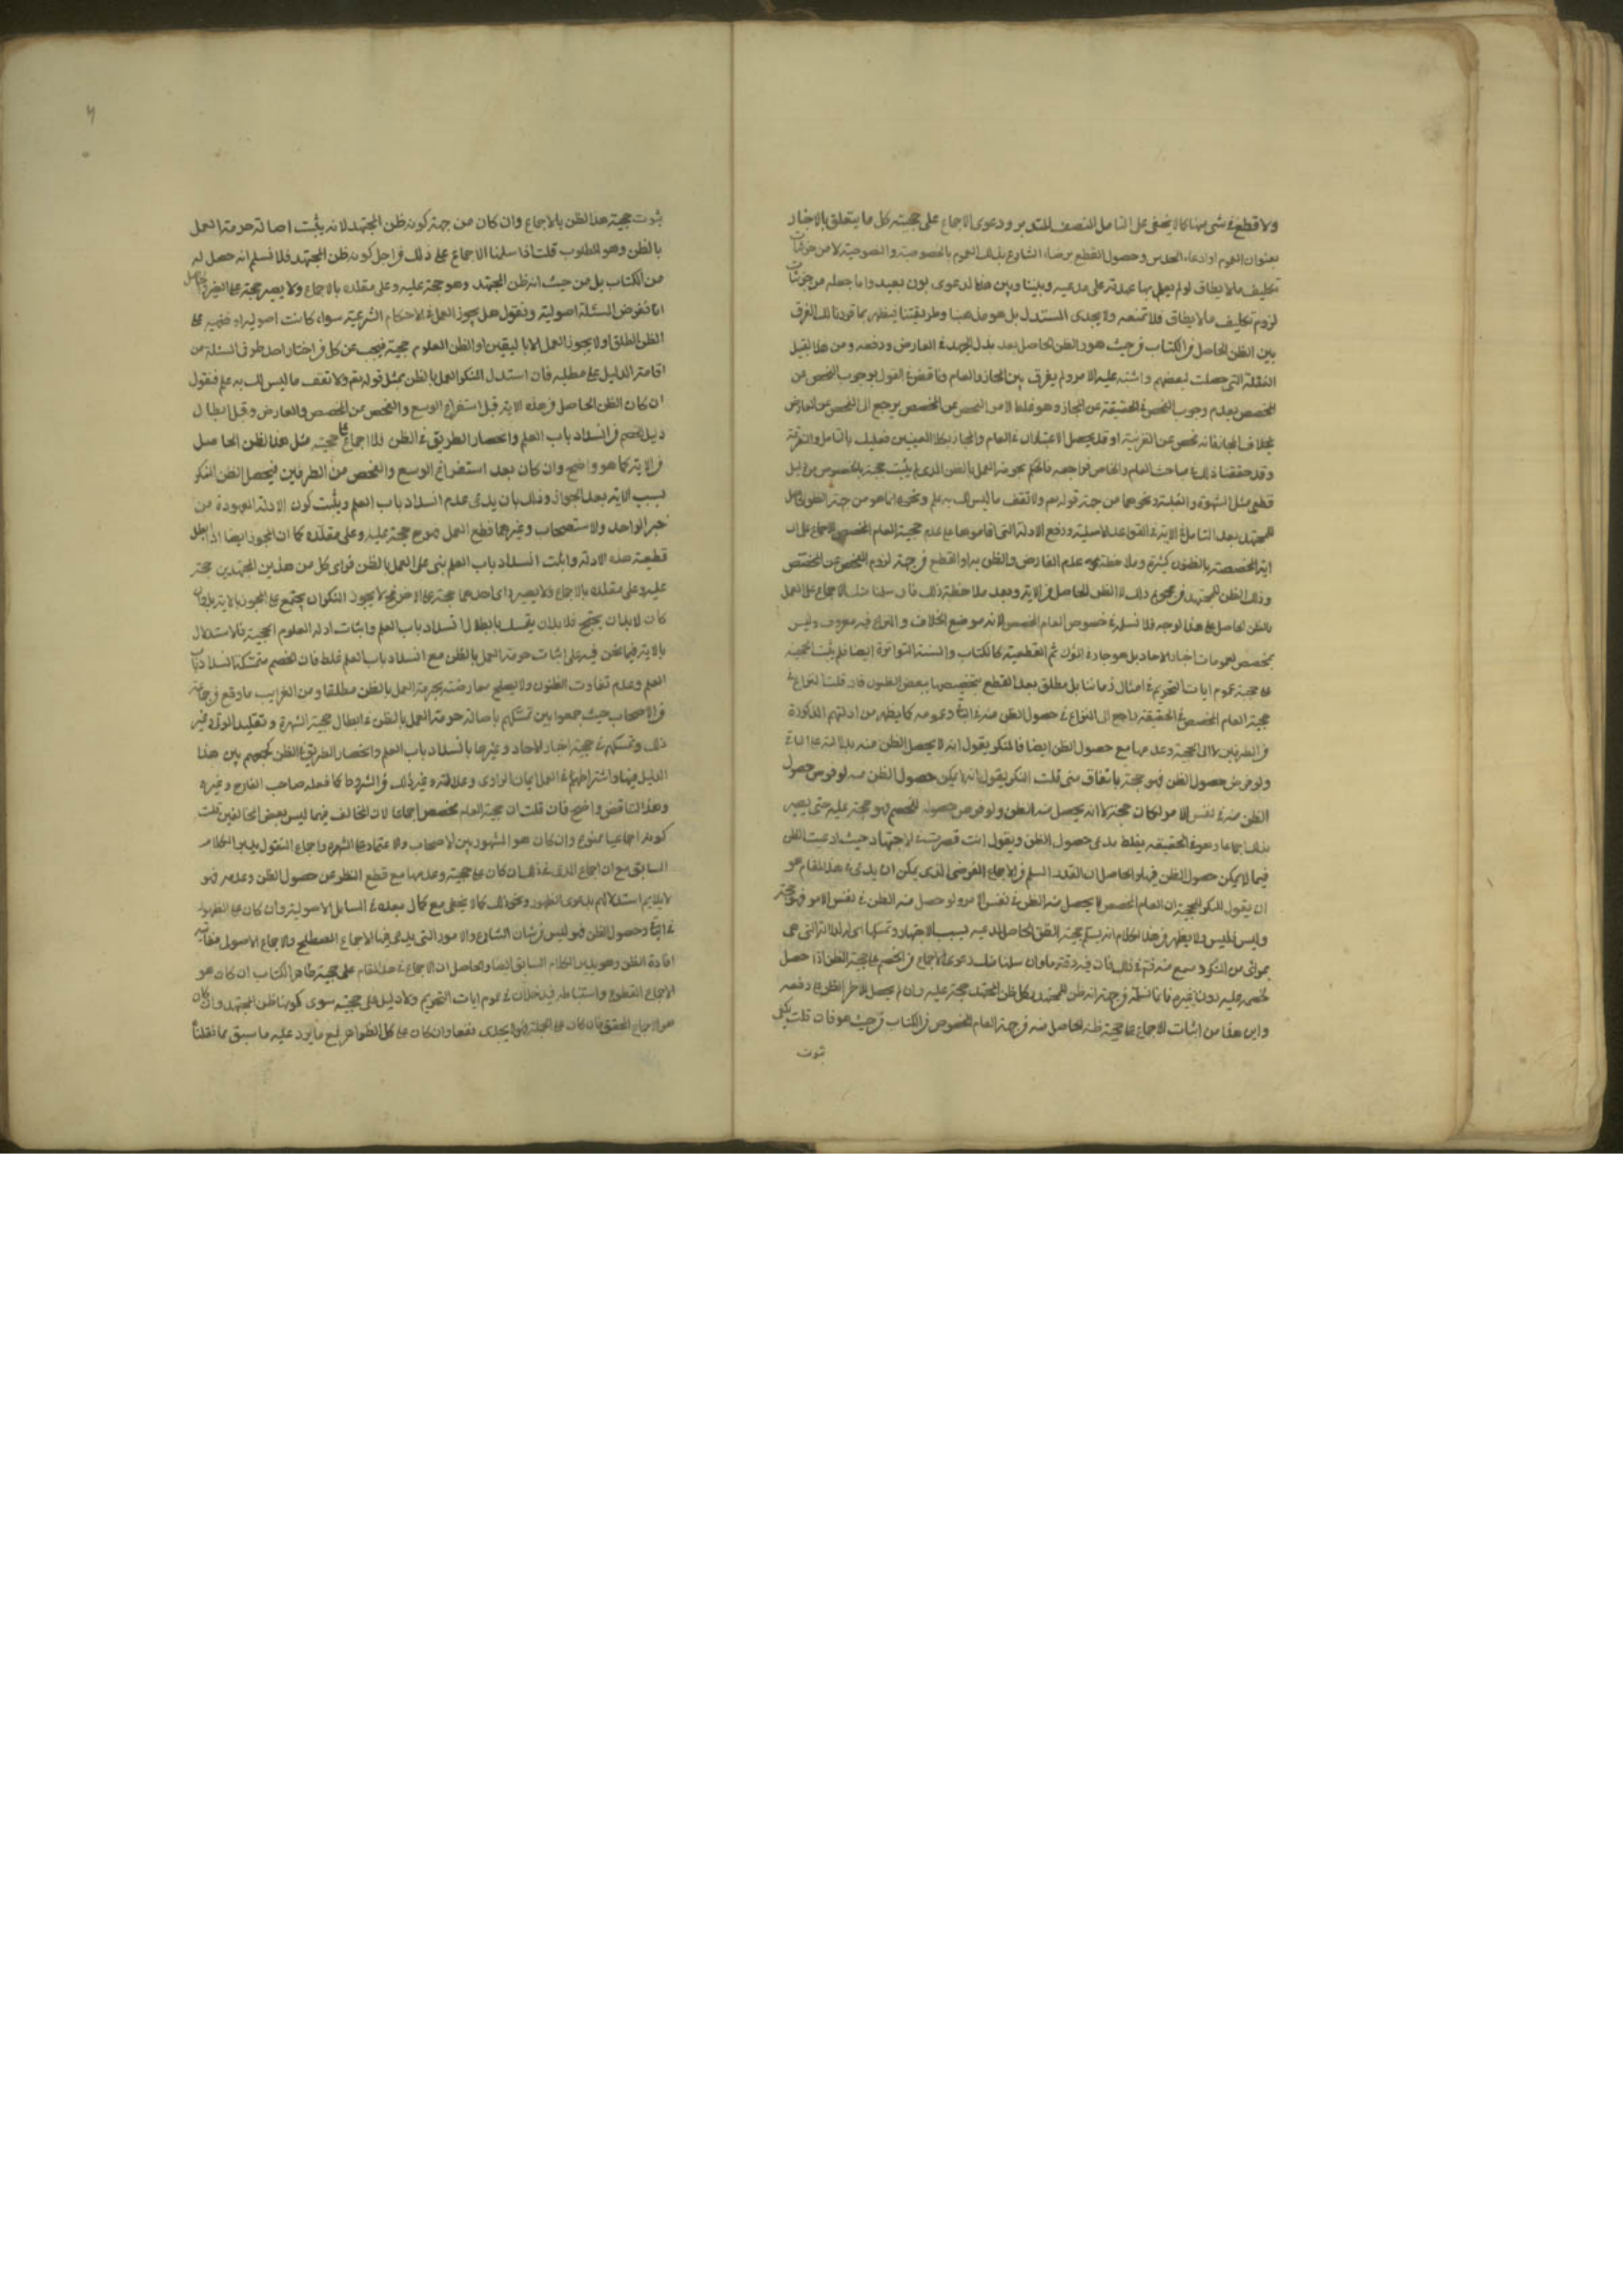 ولا قطع في شيء منها كما لا يخفى على المتأمل المنصف المتدبر ودعوى الاجماع على حجية كل ما يتعلق بالاخبار
بعنوان العموم او ادعاء الحدس وحصول القطع برضاء الشارع بذلك العموم بالخصوصية
تكليف ما لا يطاق لو لم يعمل بها عهدته على مدعيه وبيننا وبين هذا الدعوى بون بعيد واما جعله من جزئيات
لزوم تكليف ما لا يطاق فلا تمنعه ولا يجدى المستدل بل هو مذهبنا وطريقتنا فيظهر بما قررنا لك الفرق
بين الظن الحاصل من الكتاب من حيث هو والظن الحاصل بعد بذل الجهد في المعارض ودفعه ومن هذا القبيل
الغفلة التي حصلت لبعضهم واشتبه عليه الامر ولم يفرق بين المجاز والعام وناقض في القول بوجوب الفحص عن
المخصص بعدم وجوب الفحص في الحقيقة عن المجاز وهو غلط لان الامر الفحص عن المخصص يرجع الى الفحص عن المعارض
بخلاف المجاز فانه فحص عن القرينة او قد يحصل الاعتباران في العام والمجاز بكلا المعنيين فعليك بالتأمل والتفرقة
وقد حققنا ذلك في مباحث العام والخاص فراجعه فالحكم بحرمة العمل بالظن الذي لم يثبت حجيته بالخصوص من دليل
قطعي مثل الشهرة والغلبة ونحوهما من جهة قوله تعالى ولا تقف ما ليس لك به علم ونحوه انما هو من جهة الظن الحاصل
للمجتهد بعد التأمل في الاية في القواعد الاصلية ودفع الادلة التي اقاموها على عدم حجية العام المخصص
المخصصة بالظنون كثيرة وملاحظة عدم المعارض والظن به او القطع من جهة لزوم الفحص عن المخصص
وذلك الظن للمجتهد من مجموع ذلك لا الظن الحاصل من الاية وبعد ملاحظة ذلك فان سلمنا منك الاجماع على العمل
بالظن الحاصل على هذا الوجه فلا نسلمه في خصوص العام المخصص لانه موضع الخلاف والنزاع فيه معروف وليس
مخصص لعمومات اخبار الاحاد بل هو جار في القطعية كالكتاب والسنة المتواترة ايضا فلم يثبت الحجية
على حجية عموم ايات التحريم في امثال زماننا بل مطلق بعد القطع بتخصيصها ببعض الظنون فان قلت النزاع في
حجية العام المخصص في الحقيقة راجع الى النزاع في حصول الظن منه في الباقي وعدمه كما يظهر من ادلتهم المذكورة
من الطرفين لا الى الحجية وعدمها مع حصول الظن ايضا فالمنكر يقول انه لا يحصل الظن منه بدلالته على الباقي
ولو فرض حصول الظن فهو حجة باتفاق مني قلت المنكر يقول انه لا يمكن حصول الظن منه لو فرض حصول
الظن منه في نفس الامر لكان حجة لا انه يحصل منه الظن ولو فرض حصوله للخصم فهو حجة عليه حتى يصير
ذلك اجماعا وهو في الحقيقة يغلط مدعى حصول الظن ويقول انت قصرت في الاجتهاد حيث ادعيت الظن
فيما لا يمكن حصول الظن فيه والحاصل ان القدر المسلم من الاجماع الفرضي الذي يمكن ان يدعى في هذا المقام هو
ان يقول المنكر للحجية ان العام المخصص لا يحصل منه الظن في نفس الامر ولو حصل منه الظن في نفس الامر فهو حجة
وليس فليس ولا يظهر من هذا الكلام انه يسلم حجية الظن الحاصل لمدعيه بسبب الاجتهاد
بمرأى من المنكر ومسمع منه فتم في ذلك فان فيه دقة ما وان سلمنا منك دعوى الاجماع من الخصم على حجية الظن اذا حصل
لخصمه عليه دون غيره فانما نسلمه من جهة انه ظن المجتهد وكل ظن المجتهد حجة عليه وان لم يحصل لاخر الظن على دفعه
واين هذا من اثبات الاجماع على حجية ظنه الحاصل منه من جهة العام المخصوص من الكتاب من حيث هو فان قلت يكفي
ثبوت
ثبوت حجية هذا الظن بالاجماع وان كان من جهة كونه ظن المجتهد لانه يثبت اصالة حرمة العمل
بالظن وهو المطلوب قلت اذا سلمنا الاجماع على ذلك من اجل كونه ظن المجتهد فلا نسلم انه حصل له
من الكتاب بل من حيث انه ظن المجتهد وهو حجة عليه وعلى مقلده بالاجماع ولا يصير حجة على الغير والحاصل
انا نفرض المسئلة اصولية ونقول هل يجوز العمل في الاحكام الشرعية سواء كانت اصولية او فقهية على
الظن المطلق او لا يجوز العمل الا باليقين او الظن المعلوم حجيته فيجب عن كل من اختار احد طرفي المسئلة من
اقامة الدليل على مطلبه فان استدل المنكر للعمل بالظن بمثل قوله تعالى ولا تقف ما ليس لك به علم فنقول
ان كان الظن الحاصل من هذه الاية قبل استفراغ الوسع والفحص عن المخصص والمعارض وقبل ابطال
دليل الخصم من انسداد باب العلم وانحصار الطريق في الظن فلا اجماع على حجية مثل هذا الظن الحاصل
من الاية كما هو واضح وان كان بعد استفراغ الوسع والفحص من الطرفين فيحصل الظن للمنكر
بسبب الاية بعدم الجواز وذلك بان يدعى عدم انسداد باب العلم ويثبت كون الادلة المعهودة من
خبر الواحد والاستصحاب وغيرهما قطع العمل فهو ح حجة عليه وعلى مقلده كما ان المجوز ايضا اذا ابطل
قطعية هذه الادلة واثبت انسداد باب العلم بنى على العمل بالظن فراى كل من هذين المجتهدين حجة
عليه وعلى مقلده بالاجماع فلا يصير راى احدهما حجة على الاخر فح لا يجوز للمنكر ان يحتج على المجوز بالاية
كان لا بد ان يحتج فلا بد ان يتمسك بابطال انسداد باب العلم واثبات ادلة المعلوم الحجية فالاستدلال
بالاية فيما نحن فيه على اثبات حرمة العمل بالظن مع انسداد باب العلم غلط فان الخصم متمسك بانسداد باب
العلم وعدم تفاوت الظنون ولا يصلح معارضته بحرمة العمل بالظن مطلقا ومن الغرايب ما وقع من جماعة
من الاصحاب حيث جمعوا بين تمسكهم باصالة حرمة العمل بالظن في ابطال حجية الشهرة وتقليد الموتى وغير
ذلك وتمسكهم في حجية اخبار الاحاد وغيرها بانسداد باب العلم وانحصار الطريق في الظن كجمعهم بين هذا
الدليل فيها واشتراطهم في العمل ايمان الراوى وعدالته وغير ذلك من الشروط كما فعله صاحب المعالم وغيره
وهذا التناقض واضح فان قلت ان حجية العام المخصص اجماعي لان المخالف فيها ليس بعض المخالفين قلت
كونه اجماعيا ممنوع وان كان هو المشهور بين الاصحاب والاعتماد على الشهرة واجماع المنقول
السابق مع ان اجماع المدعى في ذلك ان كان على حجيته وعدمها مع قطع النظر عن حصول الظن وعدمه فهو
لا يلايم استدلالهم بدعوى الظهور ونحو ذلك كما لا يخفى مع كمال بعده في المسائل الاصولية وان كان على الظهور
في الباقي وحصول الظن فهو ليس من شان الشارع والامور التي يدعى فيها الاجماع المصطلح والاجماع الاصول
افادة الظن وهو يدير الكلام السابق ايضا والحاصل ان الاجماع في هذا المقام على حجية ظاهر الكتاب ان كان هو
الاجماع القطوع واستنباطه فيه خلاف في عموم ايات التحريم ولا دليل على حجيته سوى كونها ظن المجتهد وان كان
هو الاجماع المحقق فان كان على الجملة فهو لا يجدى نفعا وان كان على كل الظواهر فمع ما يرد عليه ما سبق مما نقلنا